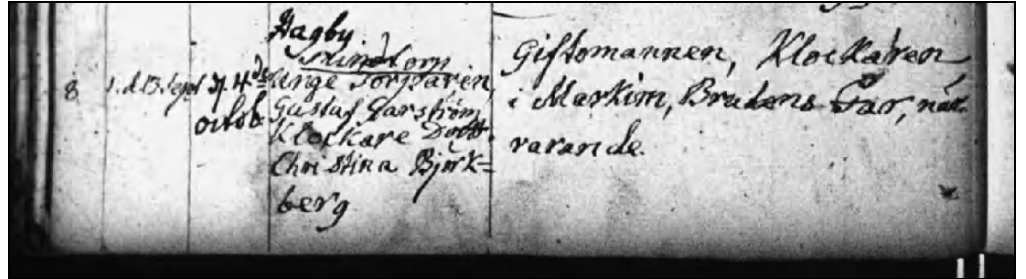 Hagby
8 1. d. 13. Sept d. 4de Unge Torparen,
octob. Gustaf Garström,
Klockare Dott.
Christina Björk=
berg
Giftomannen, Klockaren
i Markim, Brudens Far, när-
varande.